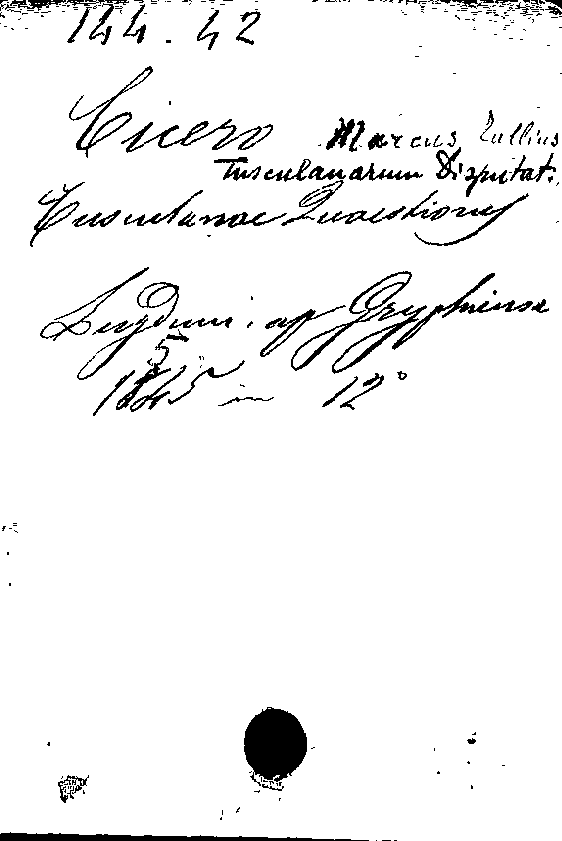 144.42
Cicero Marcus Tullius
Tusculanarum Disputat.
Tusculanae Quaestiones
Lugduni, ap Gryphium
5
1545 in 12°